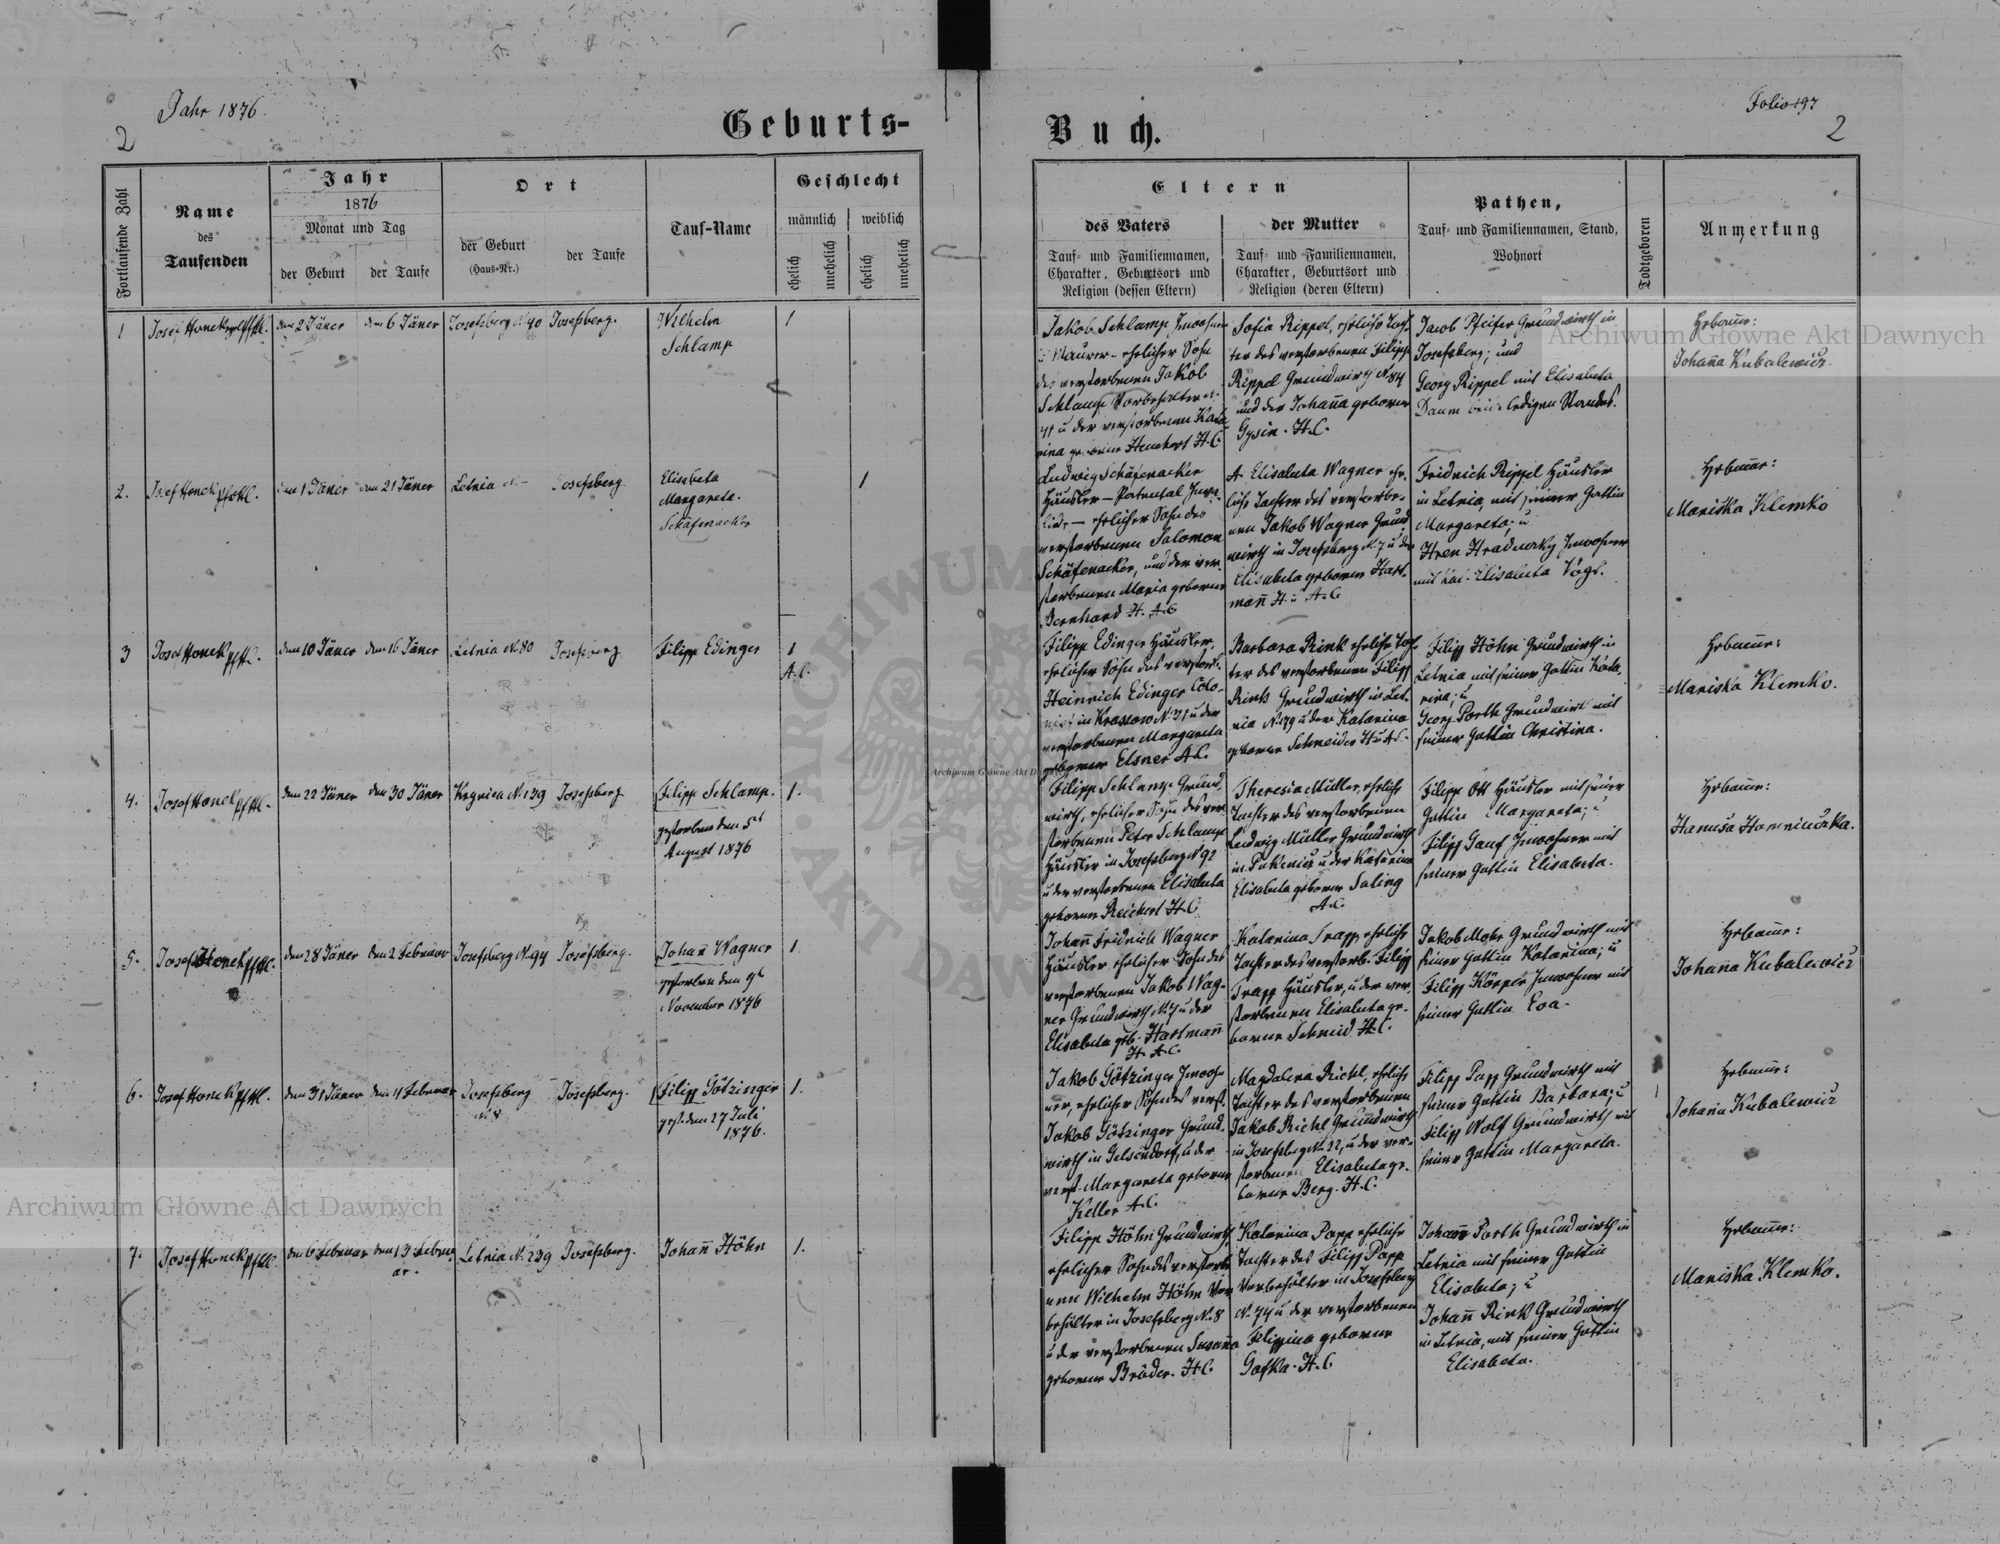 Jahr 1876.
2
Geburts-
Fortlaufende Zahl
Name
des
Taufenden
Jahr
1876
Monat und Tag
der Geburt
der Taufe
Ort
der Geburt
(Haus-Nr.)
der Taufe
Tauf-Name
Geschlecht
männlich
weiblich
ehelich
unehelich
ehelich
unehelich
1
Josef Honek
den 2 Jäner
den 6 Jäner
Josefsberg N 40
Josefsberg.
Wilhelm
Schlamp
1
2.
Josef Honek
den 1 Jäner
den 21 Jäner
Letnia
Josefsberg
Elisabeta
Margareta.
Schäfenacker
1
3
Josef Honek
den 10 Jäner
den 16 Jäner
Letnia N. 80
Josefsberg
Filipp Edinger
1
A. C.
4.
Josef Honek
den 22 Jäner
den 30 Jäner
N. 139
Josefsberg
Filipp Schlamp.
gestorben den 5t
August 1876
1.
5.
Josef Honek
den 28 Jäner
den 2 Februar
Josefsberg N. 94
Josefsberg.
Johan̄ Wagner
gestorben den 9t
November 1876
1.
6.
Josef Honek
den 31 Jäner
den 4 Februar
Josefsberg
N. 8
Josefsberg.
Filipp Götzinger
gest. den 27 Juli
1876.
1.
7.
Josef Honek
den 6 Februar
den 13 Februar
ar.
Letnia N. 239
Josefsberg.
Johan̄ Höhn
1.
Buch.
Folio 197
2
Eltern
des Vaters
Tauf- und Familiennamen,
Charakter, Geburtsort und
Religion (dessen Eltern)
der Mutter
Tauf- und Familiennamen,
Charakter, Geburtsort und
Religion (deren Eltern)
Pathen,
Tauf- und Familiennamen, Stand,
Wohnort
Todtgeboren
Anmerkung
Jakob Schlamp Inwohner
Maurer - ehelicher Sohn
des verstorbenen Jakob
Schlamp Vorbehalter N.
41 u der verstorbenen Kata
rina geborne H. C
Sofia Rippel, eheliche Toch
ter des verstorbenen Filipp
Rippel Grundwirth N 84
und der Johan̄a geborner
Gysin. H. C.
Jacob Pfeifer Grundwirth in
Josefsberg; und
Georg Rippel mit Elisabeta
Daum beide ledigen Standes.
Hebam̄e:
Johan̄a Kubalewicz.
Ludwig Schäfenacker
Häusler - Patental Inva
lide - ehelicher Sohn des
verstorbenen Salomon
Schäfenacker, und der ver
storbenen Maria geborner
Bernhard H. A. C
Elisabeta Wagner ehe
liche Tochter des verstorbe-
nen Jakob Wagner Grund
wirth in Josefsberg N. 7 u der
Elisabeta geborner Hart.
man̄ H. u A. C
Fridrich Rippel Häusler
in Letnia, mit seiner Gattin
Margareta; u
Inwohner
mit Elisabeta Vogl.
Hebam̄e:
Mariska Klemko
Filipp Edinger Häusler,
ehelicher Sohn des verstorb.
Heinrich Edinger Colo-
nist in N. 21 u der
verstorbenen Margareta
geborner Elsner A. C.
Barbara Rink eheliche Toch
ter des verstorbenen Filipp
Rink Grundwirth in Let
nia N. 79 u der Katarina
geborner Schneider H u A. C.
Filipp Höhn Grundwirth in
Letnia mit seiner Gattin Kata
rina; u
Georg Porth Grundwirt mit
seiner Gattin Christina.
Hebam̄e:
Mariska Klemko.
Filipp Schlamp Grund
wirth, ehelicher Sohn des ver
storbenen Peter Schlamp
Häusler in Josefsberg N 92
u der verstorbenen Elisabeta
geborner Reichert H. C
Theresia Müller, eheliche
Tochter des verstorbenen
Ludwig Müller Grundwirth
in u der Katarina
Elisabeta geborner Saling
A. C.
Filipp Ott Häusler mit seiner
Gattin Margareta; u
Filipp Inwohner mit
seiner Gattin Elisabeta.
Hebam̄e:
Johan̄ Fridrich Wagner
Häusler ehelicher Sohn des
verstorbenen Jakob Wag-
ner Grundwirth N. 7 u der
Elisabeta geb. Hartman̄
H. A. C.
Katarina Trapp, eheliche
Tochter des verstorb. Filipp
Trapp Häusler, u der ver
storbenen Elisabeta ge.
borner Schmid H. C.
Jakob Mohr Grundwirth mit
seiner Gattin Katarina; u
Filipp Körper Inwohner mit
seiner Gattin Eva.
Hebam̄e:
Johan̄a Kubalewicz
Jakob Götzinger Inwoh
ner, ehelicher Sohn des verst.
Jakob Götzinger Grund
wirth in Gelsendorf, u der
verst. Margareta geborner
Keller A. C.
Magdalena Richl, eheliche
Tochter des verstorbenen
Jakob Richl Grundwirth
in Josefsberg N. 22, u der ver-
storbenen Elisabeta ge.
borner Berg. H. C.
Filipp Papp Grundwirth mit
seiner Gattin Barbara; u
Filipp Wolf Grundwirth mit
seiner Gattin Margareta.
Hebam̄e:
Johan̄a Kubalewicz
Filipp Höhn Grundwirth
ehelicher Sohn des verstorbe
nen Wilhelm Höhn Vor
behälter in Josefsberg N. 8
u der verstorbenen Susan̄a
geborner Bräder. H. C.
Katarina Papp eheliche
Tochter des Filipp Papp
Vorbehälter in Josefsberg
N. 74 u der verstorbenen
Filippina geborner
Gafka. H. C
Johan̄ Porth Grundwirth in
Letnia mit seiner Gattin
Elisabeta; u
Johan̄ Rink Grundwirth
in Letnia, mit seiner Gattin
Elisabeta.
Hebam̄e:
Mariska Klemko.
Archiwum Główne Akt Dawnych
Archiwum Główne Akt Dawnych
Archiwum Główne Akt Dawnych
ARCHIWUM
AKT DAW